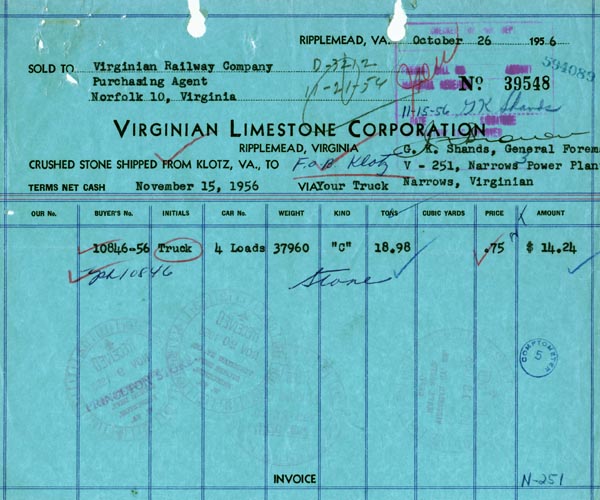 RIPPLEMEAD, VA. October 26 1956
SOLD TO Virginian Railway Company
Purchasing Agent
Norfolk 10, Virginia
D-3212
11-21-56
594089
No. 39548
11-15-56 G K Shands
VIRGINIAN LIMESTONE CORPORATION
RIPPLEMEAD, VIRGINIA
G. K. Shands, General Forem
CRUSHED STONE SHIPPED FROM KLOTZ, VA., TO F.O.B Klotz V - 251, Narrows Power Plan
TERMS NET CASH November 15, 1956 VIA Your Truck Narrows, Virginian
OUR No. BUYER'S No. INITIALS CAR No. WEIGHT KIND TONS CUBIC YARDS PRICE AMOUNT
10846-56 Truck 4 Loads 37960 "C" 18.98 .75 $ 14.24
10846 Stone
RECEIVED
PRINCETON
COMPTOMETER
5
INVOICE
N-251